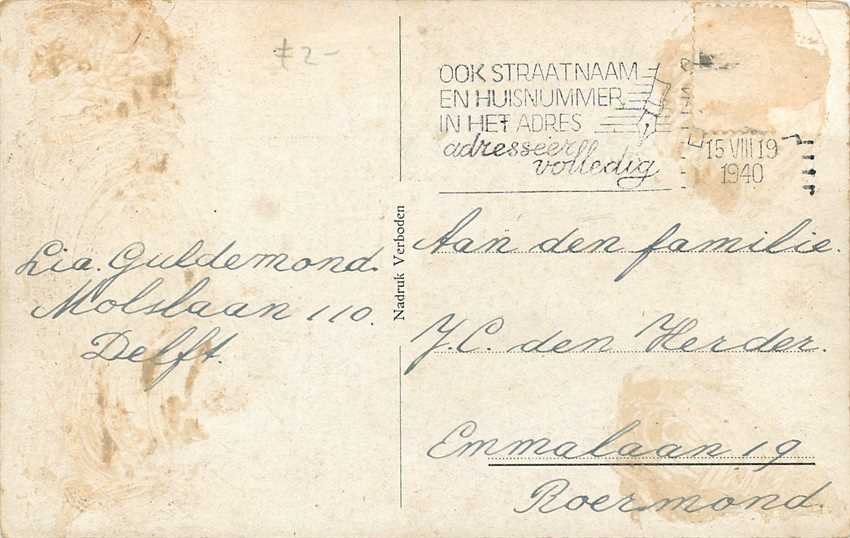 € 2-
OOK STRAATNAAM
EN HUISNUMMER
IN HET ADRES
adresseer
volledig
15 VIII 19
1940
Lia. Guldemond.
Molslaan 110.
Delft.
Nadruk Verboden
Aan den familie.
J.C. den Herder.
Emmalaan 19
Roermond.